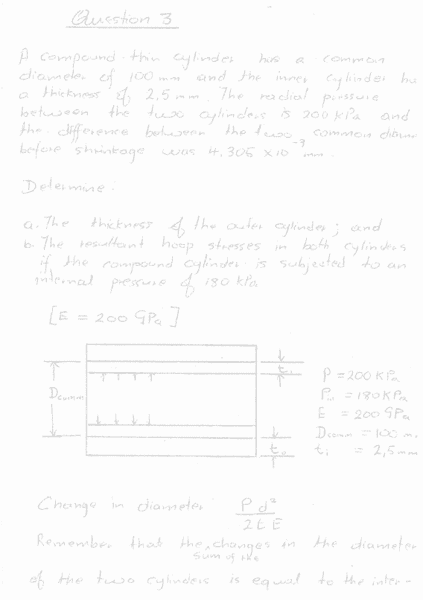 Question 3
A compound thin cylinder has a common
diameter of 100 mm and the inner cylinder ha
a thickness of 2,5 mm. The radial pressure
between the two cylinders is 200 kPa and
the difference between the two common diame
before shrinkage was 4,305 x10⁻³ mm.
Determine:
a. The thickness of the outer cylinder; and
b. The resultant hoop stresses in both cylinders
if the compound cylinder is subjected to an
internal pressure of 180 kPa
[E = 200 GPa]
Dcomm
ti
to
P = 200 KPa
Pw = 180KPa
E = 200 GPa
Dcomm = 100 m.
ti = 2,5 mm
Change in diameter: P d²
2 t E
Remember that the, changes in the diameter
sum of the
of the two cylinders is equal to the inter-